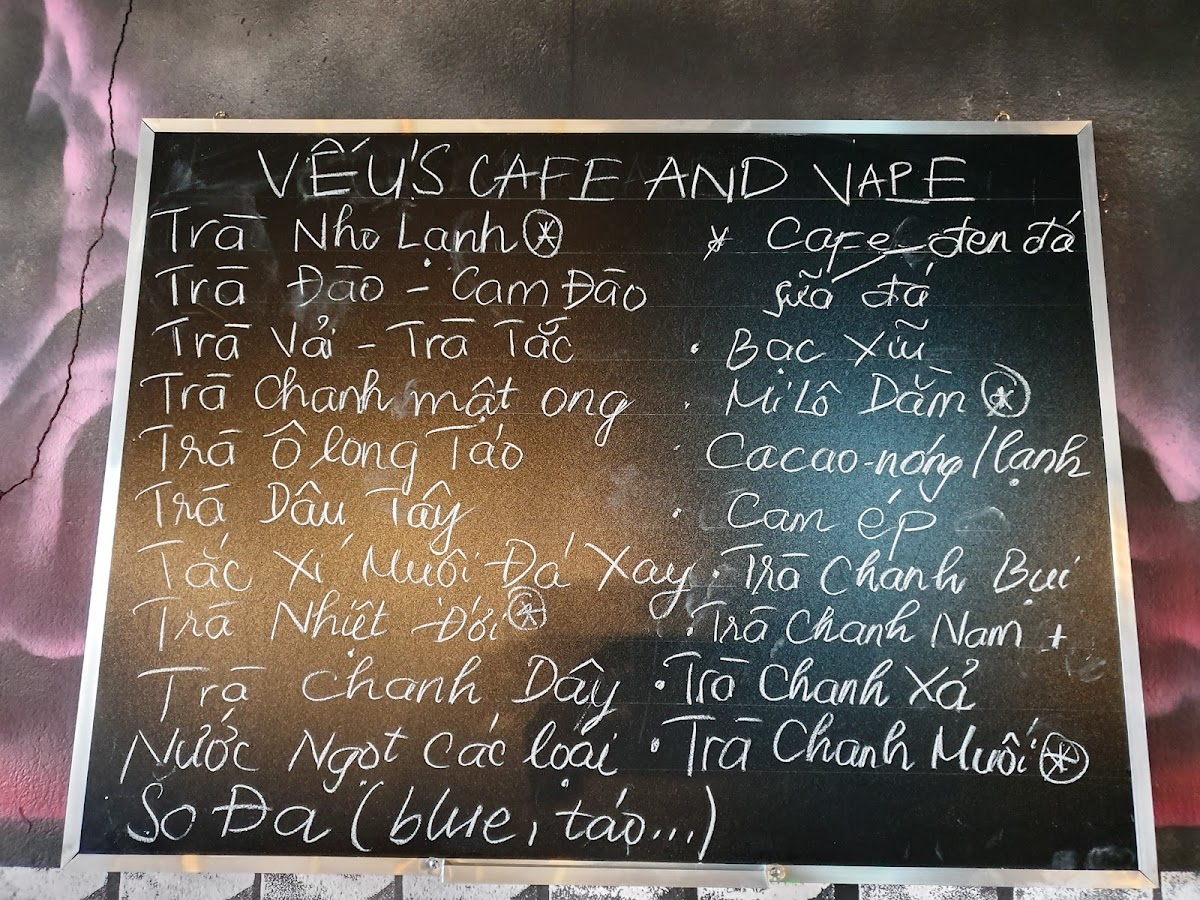 VẾU'S CAFE AND VAPE
Trà Nho Lạnh *
Trà Đào - Cam Đào
Trà Vải - Trà Tắc
Trà chanh mật ong
Trà Ô long Táo
Trà Dâu Tây
Tắc Xí Muội Đá Xay
Trà Nhiệt Đới *
Trà chanh Dây
Nước Ngọt các loại
So Đa (blue, táo...)
* Cafe - đen đá
sữa đá
• Bạc Xĩu
• Mi Lô Dầm *
• Cacao - nóng / lạnh
• Cam ép
• Trà Chanh Bụi
• Trà Chanh Nam +
• Trà Chanh Xả
• Trà Chanh Muối *